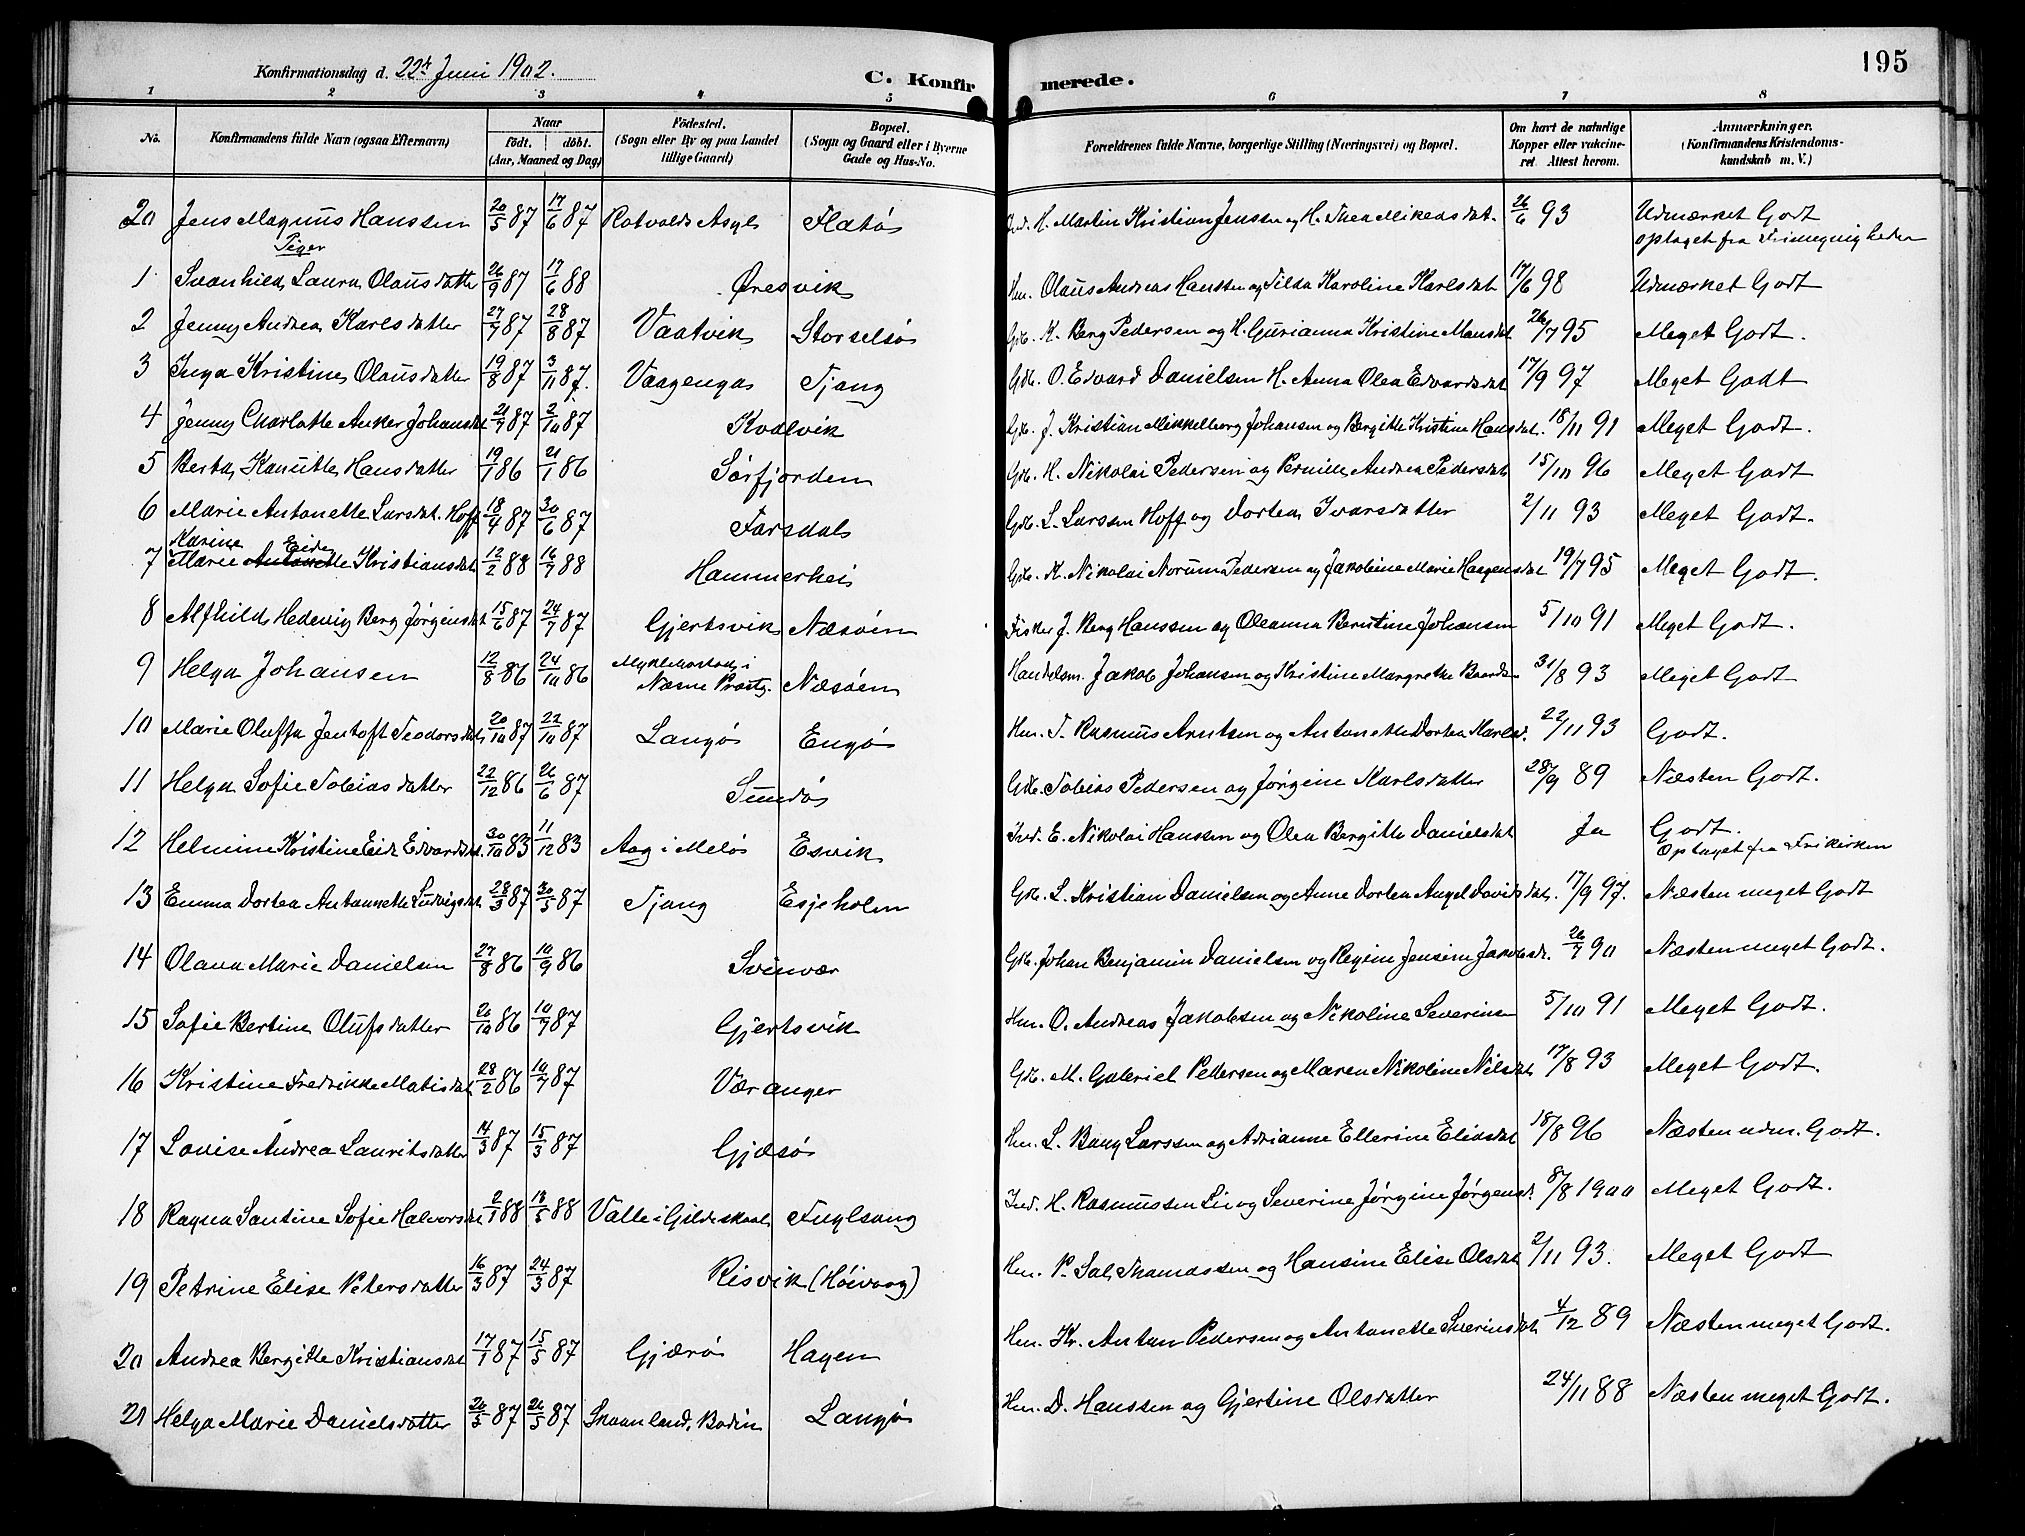 195
Konfirmationsdag d. 22de Juni 1902.
C. Konfirmerede.
1 2 3 4 5 6 7 8
No. Konfirmandens fulde Navn (ogsaa Efternavn) Naar født. døbt. (Aar, Maaned og Dag) Fødested. (Sogn eller By og paa Landet tillige Gaard) Bopæl. (Sogn og Gaard eller i Byerne Gade og Hus-No. Forældrenes fulde Navne, borgerlige Stilling (Næringsvei) og Bopæl. Om havt de naturlige Kopper eller vakcineret. Attest herom. Anmærkninger. (Konfirmandens Kristendomskundskab m. V.)
20 Jens Magnus Hanssen 20/5 87 17/6 87 Rotvolds Asyl Flatø Ind. H. Martin Kristian Jenssen og H. Thea Mikeas dat. 26/6 93 Udmærket Godt
optaget fra Frimenigheden
Piger
1 Svanhild Laura Olausdatter 26/9 87 17/6 88 Øresvik Hm. Olaus Andreas Hanssen og Tilda Karoline Karlsdat 17/6 98 Udmærket Godt
2 Jenny Andrea Karlsdatter 27/7 87 28/8 87 Vaatvik Storselsø Gdb. K. Berg Pedersen og H. Gurianna Kristine Mansdat 26/7 95 Meget Godt.
3 Inga Kristine Olausdatter 19/8 87 3/11 87. Vaagenga Tjang Gdb. O. Edvard Danielsen H. Anna Olea Edvardsdat 17/9 97 Meget Godt
4 Jenny Charlotte Anker Johansdat 21/7 87 2/10 87 Kvalvik Gdb. J. Kristian Mikkelborg Johansen og Bergitte Kristine Hansdat. 18/11 91 Meget Godt.
5 Berta Kanutte Hansdatter 19/1 86 21/1 86 Sørfjorden Gdb. H. Nikolai Pedersen og Pernille Andrea Pedersdat 15/10 96 Meget Godt
6 Marie Antonette Larsdat. Hoff 18/4 87 30/6 87 Farsdal Gdb. L. Larssen Hoff og Dortea Ivarsdatter 2/11 93 Meget Godt.
Karine Eide
7 Marie Antonette Kristiansdat 12/2 88 16/7 88 Hammerhei Gdb. K. Nikolai Norum Pedersen og Jakobine Marie Haagensdat 19/7 95 Meget Godt.
8 Alfhild Hedevig Berg Jørgensdat 15/6 87 24/7 87 Gjertsvik Næsøen Fisker J. Berg Hanssen og Oleanna Berntine Johansen 5/10 91 Meget Godt.
9 Helga Johansen 12/8 86 24/10 86 i Næsne Præstg. Næsøen Handelsm. Jakob Johansen og Kristine Margrethe 31/8 93 Meget Godt.
10 Marie Oluffa Jentoft Teodorsdat 20/10 87 22/10 87 Langø Engø Hm. T. Rasmus Arntsen og Antonette Dortea Karlsd. 22/11 93 Godt.
11 Helga Sofie Tobias datter 22/12 86 26/6 87 Sundø Gdb. Tobias Pedersen og Jørgine Karlsdatter 28/9 89 Næsten Godt.
12 Helmine Kristine Eide Edvardsdat. 30/10 83 11/12 83 Aag i Melø Esvik Ind. E. Nikolai Hanssen og Olea Bergitte Danielsdat Ja Godt.
Optaget fra Frikirken
13 Emma Dortea Antonette Ludvigsdat. 28/3 87 30/5 87 Tjang Esjeholm Gdb. L. Kristian Danielsen og Anne Dortea Angel Davidsdat. 17/9 97. Næsten meget Godt
14 Olava Marie Danielsen 27/8 86 10/9 86 Svinvær Gdb. Johan Benjamin Danielsen og Regine Jensine Jakobsd. 26/7 90 Næsten meget Godt.
15 Sofie Bertine Olufsdatter 20/10 86 10/7 87 Gjertsvik Hm. O. Andreas Jakobsen og Nikoline Severine 5/10 91 Meget Godt.
16 Kristine Fredrikke Matisdat. 28/2 86 10/7 87 Væranger Gdb. M. Gabriel Pedersen og Maren Nikoline Nilsdat 17/8 93 Meget Godt.
17 Lovise Andrea Lauritsdatter 14/3 87 15/3 87 Gjæsø Hm. L. Bang Larssen og Adrianne Ellerine Eliasdat 18/8 96 Næsten udm. Godt.
18 Ragna Santine Sofie Halvorsdat 2/1 88 13/5 88 Valle i Gildeskaal Fuglsang Ind. H. Rasmussen Li og Severine Jørgine Jørgensd. 8/8 1900 Meget Godt.
19 Petrine Elise Petersdatter 16/3 87 24/3 87 Risvik (Høivaag) Hm. P. Sal. Thomassen og Hansine Elise Olsdat 2/11 93. Meget Godt
20 Andrea Bergitte Kristiansdat 17/1 87 15/5 87 Gjærø Hagen Hm. Kr. Anton Pedersen og Antonette Sverinsdat 4/12 89 Næsten meget Godt.
21 Helga Marie Danielsdatter 20/5 87 26/5 87 Skaanland, Bodin Langø Hm. D. Hanssen og Gjertine Olsdatter 24/11 88 Næsten meget Godt.